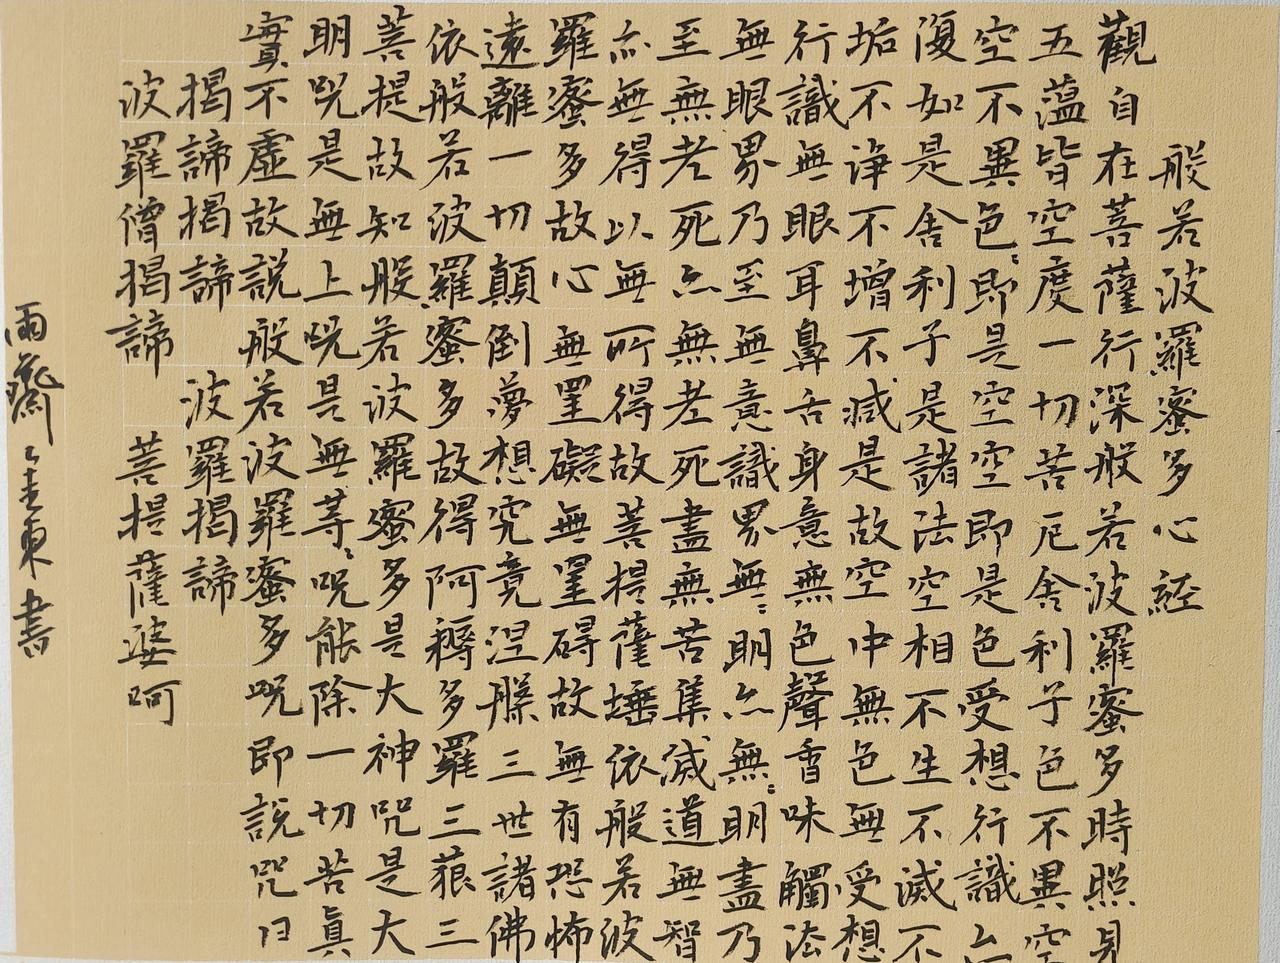 般若波羅蜜多心経
觀自在菩薩行深般若波羅蜜多時照見
五蘊皆空度一切苦厄舍利子色不異空
空不異色〻即是空空即是色受想行識亦
復如是舍利子是諸法空相不生不滅不
垢不淨不增不減是故空中無色無受想
行識無眼耳鼻舌身意無色聲香味觸法
無眼界乃至無意識界無〻明亦無〻明盡乃
至無老死亦無老死盡無苦集滅道無智
亦無得以無所得故菩提薩埵依般若波
羅蜜多故心無罣礙無罣碍故無有恐怖
遠離一切顛倒夢想究竟涅槃三世諸佛
依般若波羅蜜多故得阿耨多羅三藐三
菩提故知般若波羅蜜多是大神咒是大
明咒是無上咒是無等〻咒能除一切苦真
實不虛故說般若波羅蜜多咒即説咒曰
揭諦揭諦 波羅揭諦
波羅僧揭諦 菩提薩婆呵
雨齋 書